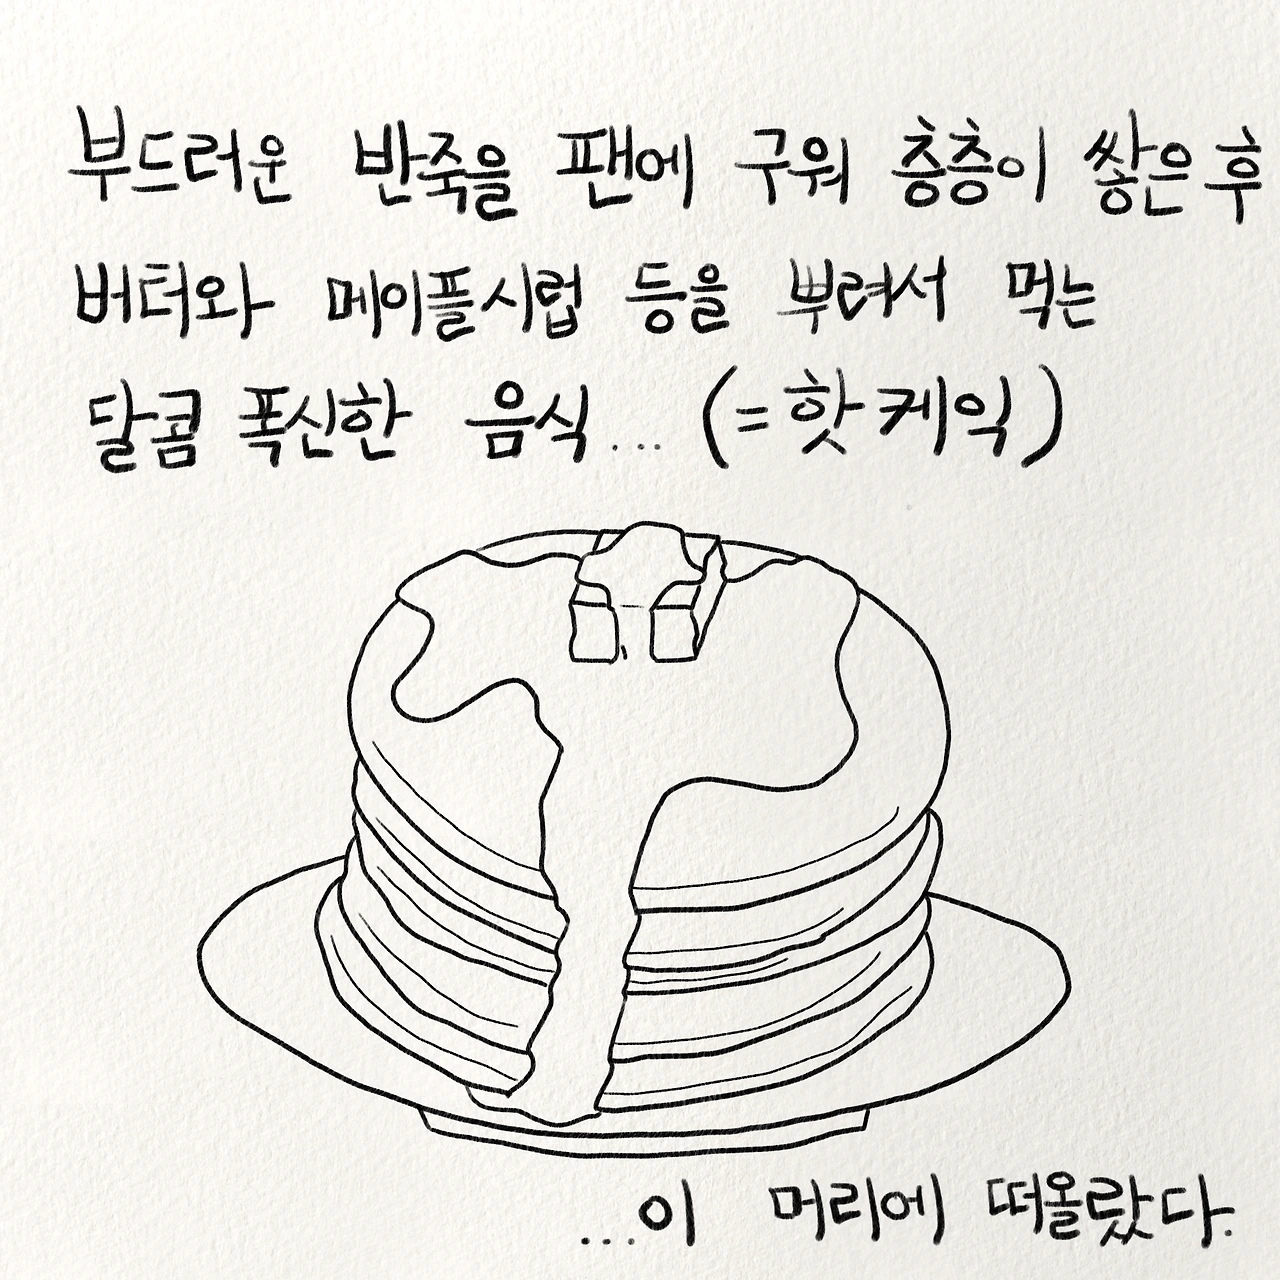 부드러운 반죽을 팬에 구워 층층이 쌓은 후
버터와 메이플시럽 등을 뿌려서 먹는
달콤 폭신한 음식... (=핫케익)
...이 머리에 떠올랐다.